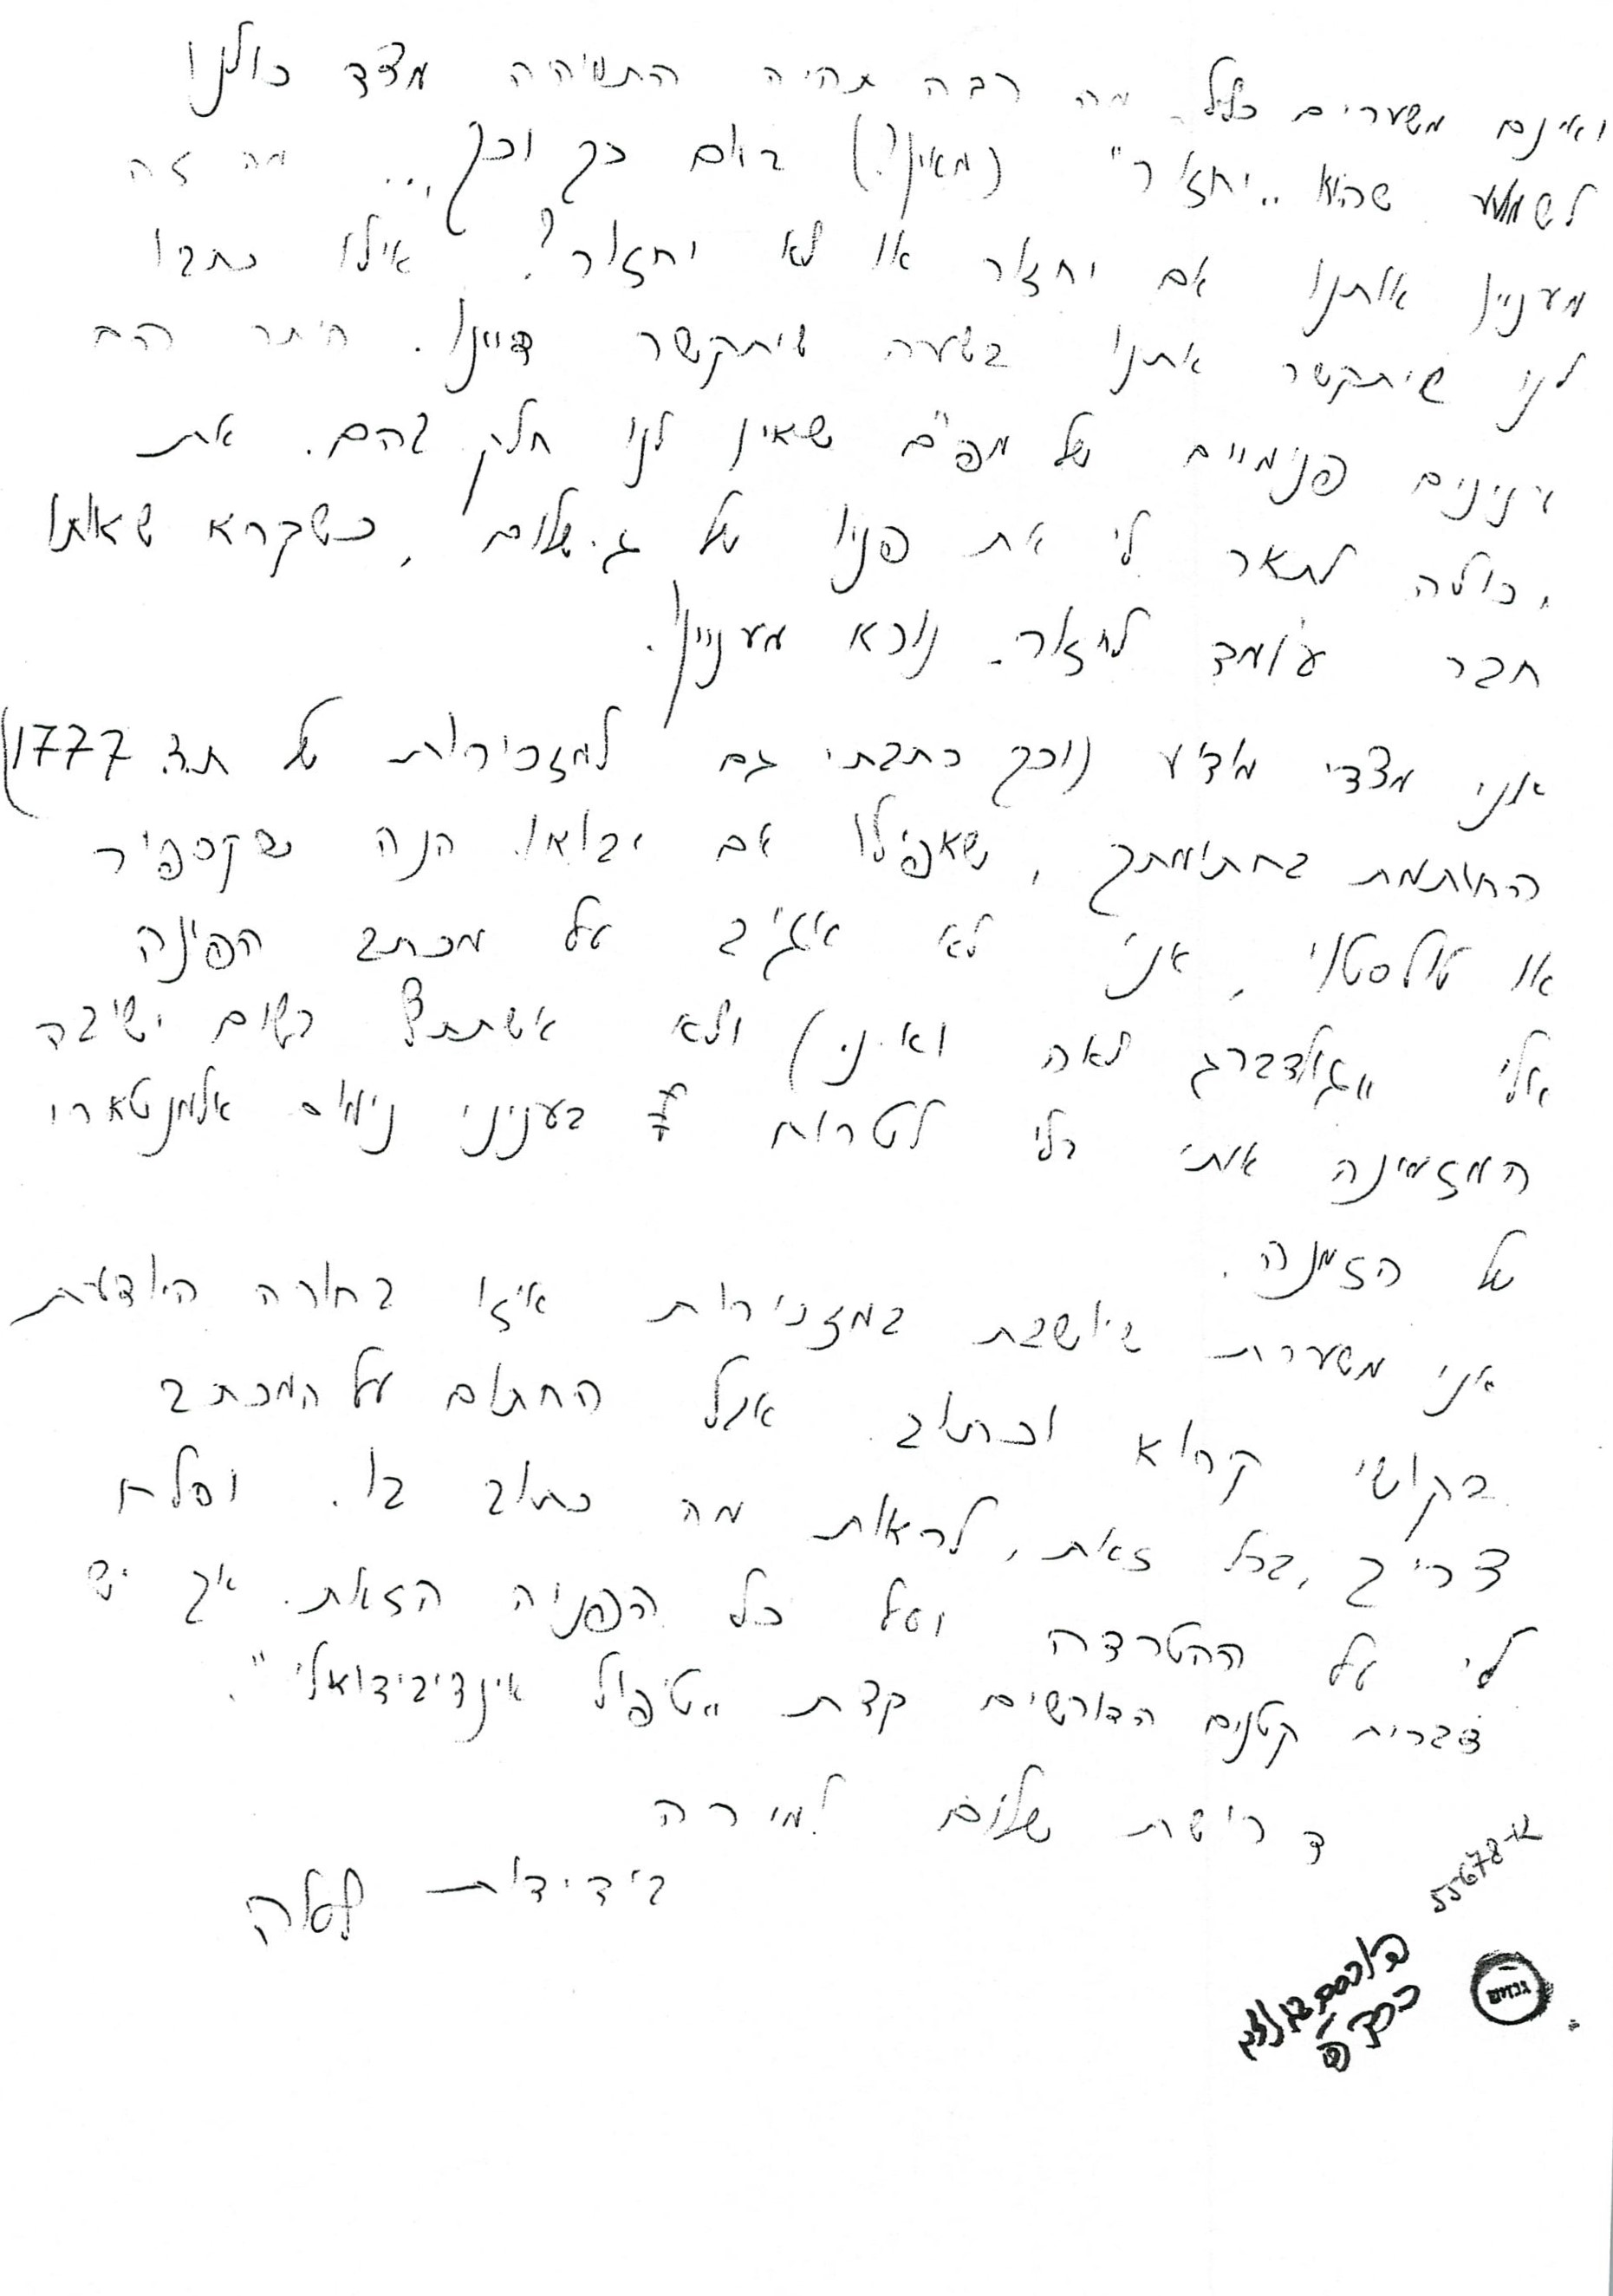 ואינם משערים כלל מה רבה תהיה התמיהה מצד כולנו
לשמוע שהוא "יחזור" (מאין?) ביום כך וכך... מה זה
מעניין אותנו אם יחזור או לא יחזור? אילו כתבו
לנו שיתקשר אתנו בשעה שיתקשר דיינו. היתר הם
ענינים פנימיים של מפ"ם שאין לנו חלק בהם. את
יכולה לתאר לי את פניו של ג. שלום, כשקרא שאותו
חבר עומד לחזור. נורא מעניין!
אני מצדי מודיע (וכך כתבתי גם למזכירות של ת.ד. 1777)
החותמת בחתימתך, שאפילו אם יבואו הנה שקספיר
או טולסטוי, אני לא אגיב על מכתב הפונה
אלי "גולדברג לאה ואני) ולא אשתתף בשום ישיבה
המזמינה אותי בלי לטרוח בעניני נימוס אלמנטארי
של הזמנה.
אני משערת שיושבת במזכירות איזו בחורה היודעת
בקושי קרוא וכתוב אבל החתום על המכתב
צריך, בכל זאת, לראות מה כתוב בו. וסלח
לי על ההטרדה ועל כל הפניה הזאת. אך יש
דברים קטנים הדורשים קצת "טיפול אינדיבידואלי".
דרישת שלום למירה
בידידות לאה
55678-א
גנזים